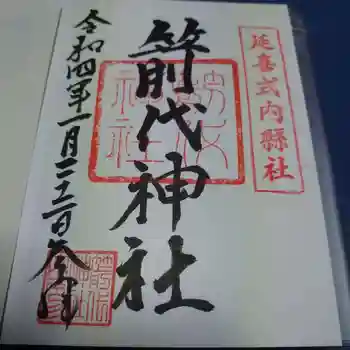 延喜式内縣社
箭代神社
令和四年一月二十二日参拝